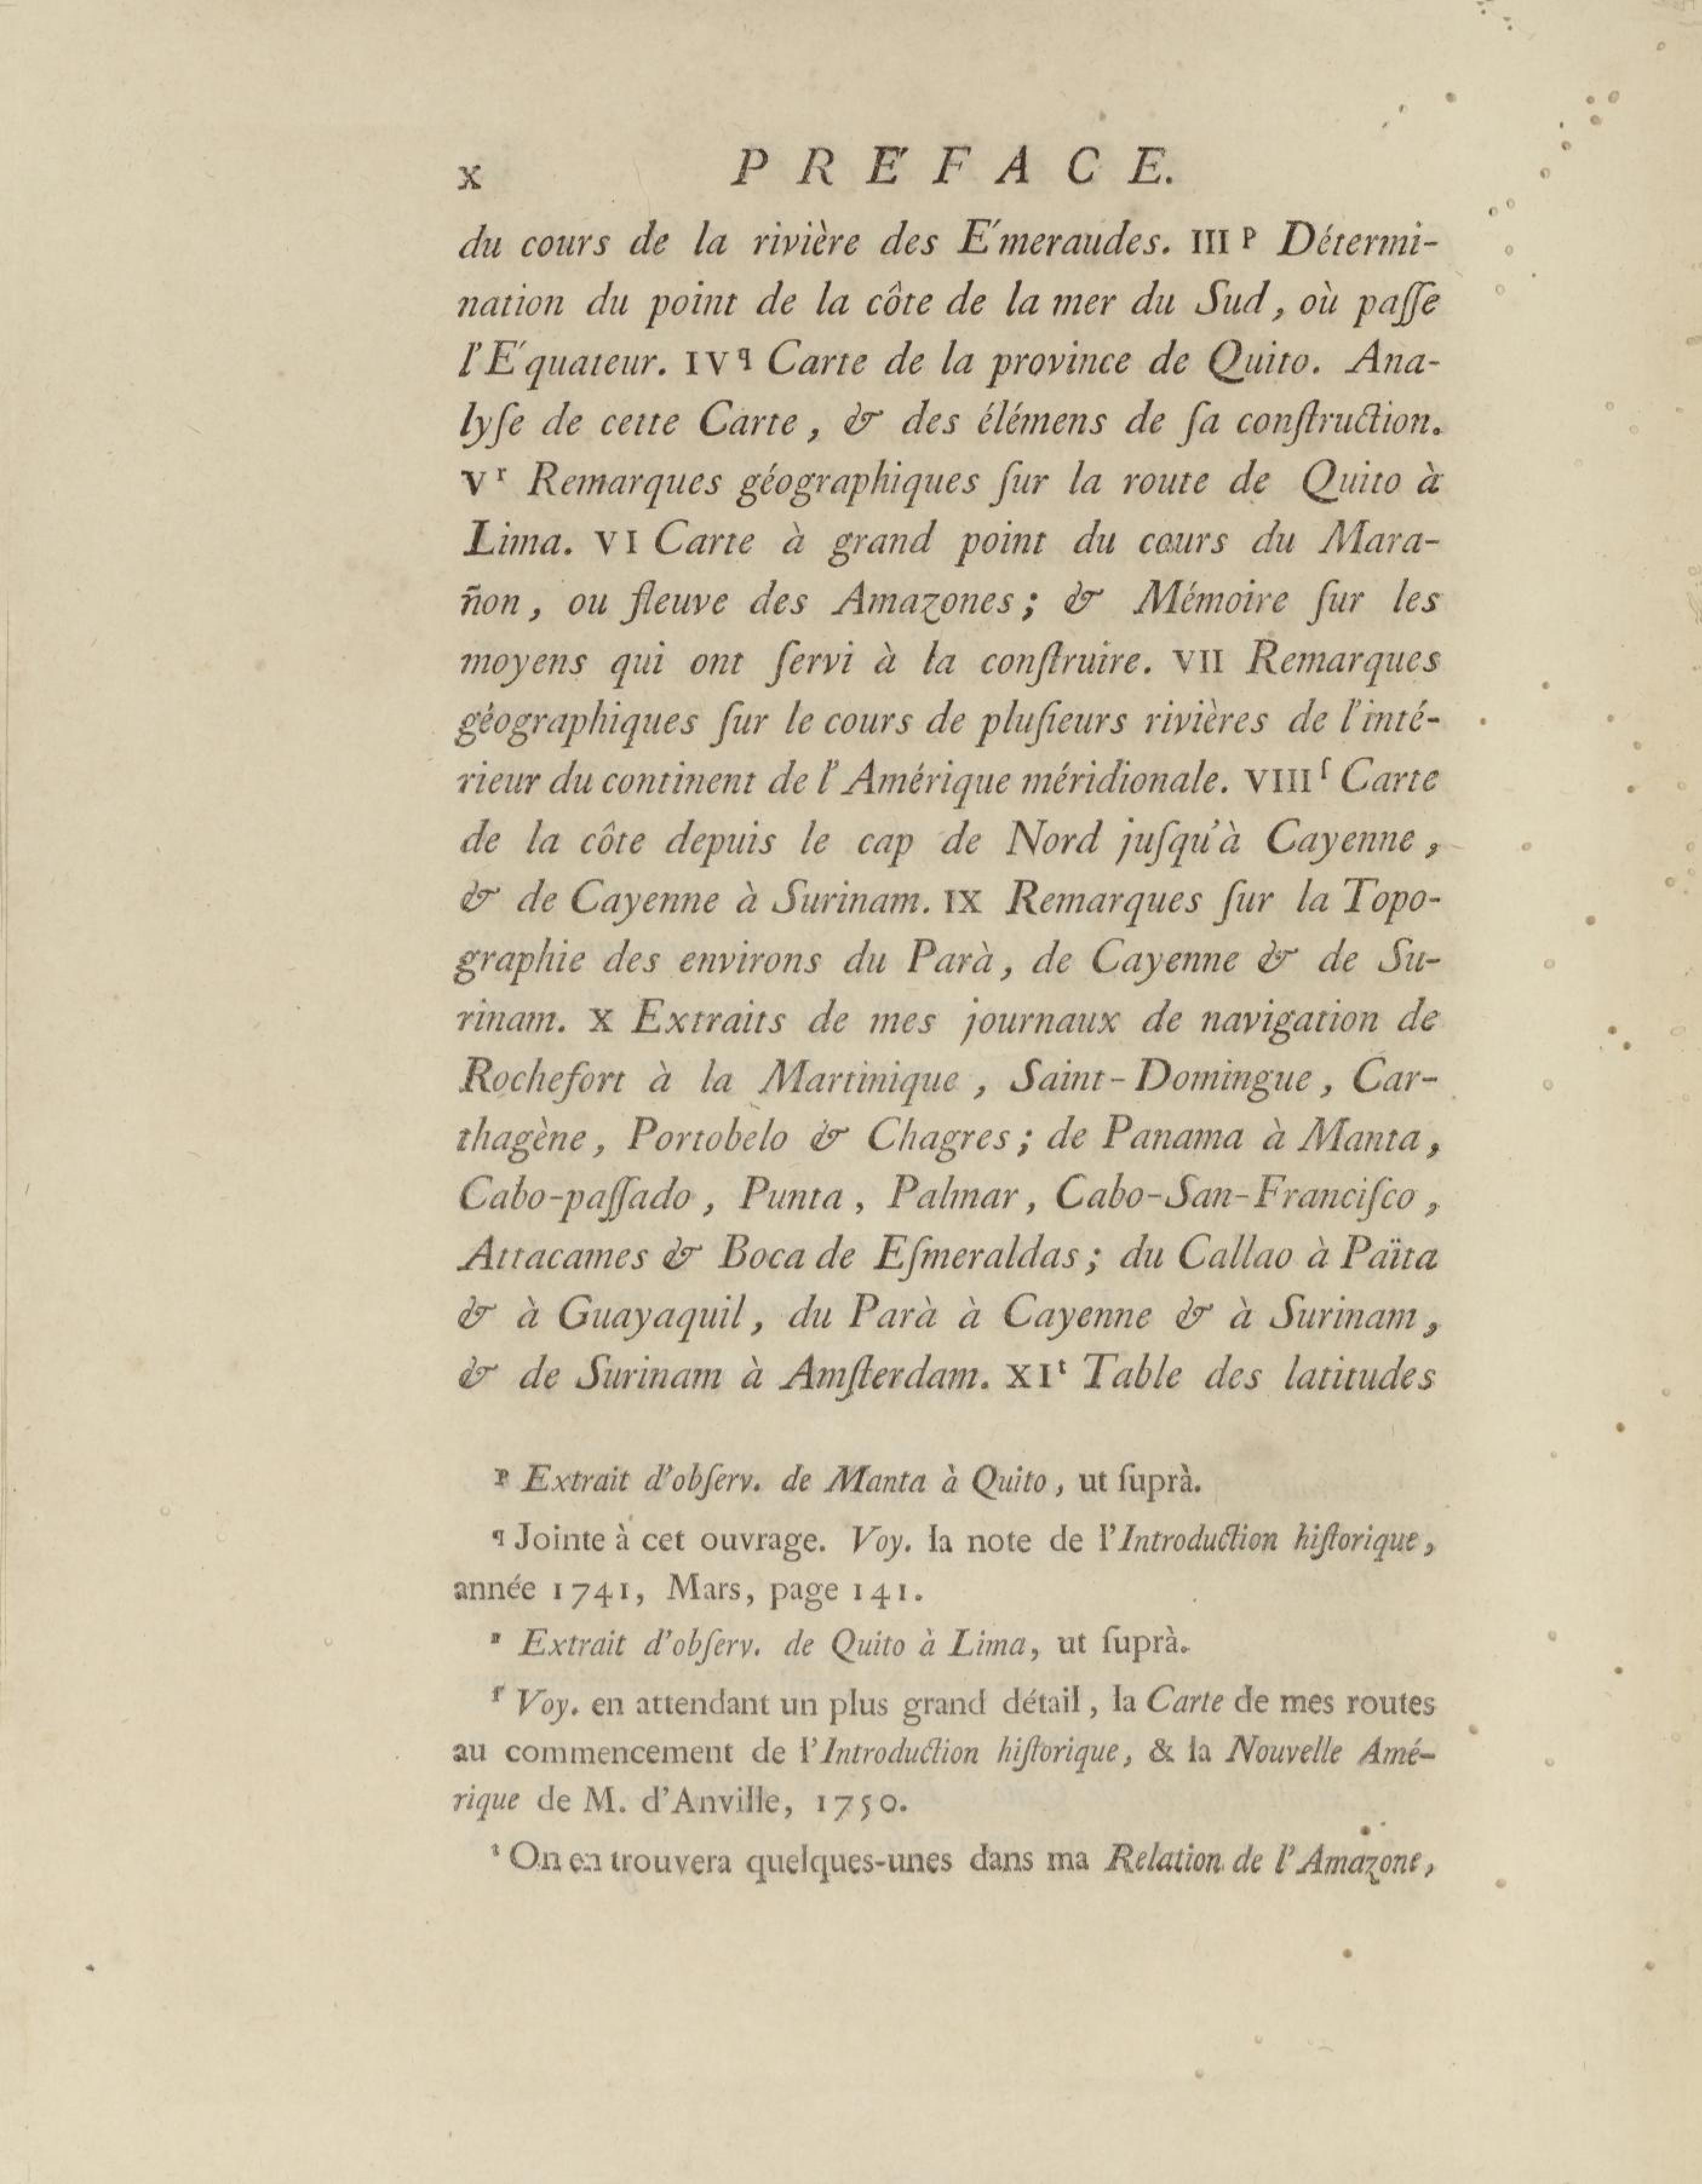 x PRÉFACE.
du cours de la rivière des E'meraudes. III ᵖ Détermi-
nation du point de la côte de la mer du Sud, où paſſe
l'E'quateur. IV ᑫ Carte de la province de Quito. Ana-
lyſe de cette Carte, & des élémens de ſa conſtruction.
V ʳ Remarques géographiques ſur la route de Quito à
Lima. VI Carte à grand point du cours du Mara-
ñon, ou fleuve des Amazones; & Mémoire ſur les
moyens qui ont ſervi à la conſtruire. VII Remarques
géographiques ſur le cours de pluſieurs rivières de l'inté-
rieur du continent de l'Amérique méridionale. VIII ᶠ Carte
de la côte depuis le cap de Nord juſqu'à Cayenne,
& de Cayenne à Surinam. IX Remarques ſur la Topo-
graphie des environs du Parà, de Cayenne & de Su-
rinam. X Extraits de mes journaux de navigation de
Rochefort à la Martinique, Saint-Domingue, Car-
thagène, Portobèlo & Chagres; de Panama à Manta,
Cabo-paſſado, Punta, Palmar, Cabo-San-Franciſco,
Attacames & Boca de Eſmeraldas; du Callao à Païta
& à Guayaquil, du Parà à Cayenne & à Surinam,
& de Surinam à Amſterdam. XI ᵗ Table des latitudes
ᵖ Extrait d'obſerv. de Manta à Quito, ut ſuprà.
ᑫ Jointe à cet ouvrage. Voy. la note de l'Introduction hiſtorique,
année 1741, Mars, page 141.
ʳ Extrait d'obſerv. de Quito à Lima, ut ſuprà.
ᶠ Voy. en attendant un plus grand détail, la Carte de mes routes
au commencement de l'Introduction hiſtorique, & la Nouvelle Amé-
rique de M. d'Anville, 1750.
ᵗ On en trouvera quelques-unes dans ma Relation de l'Amazone,